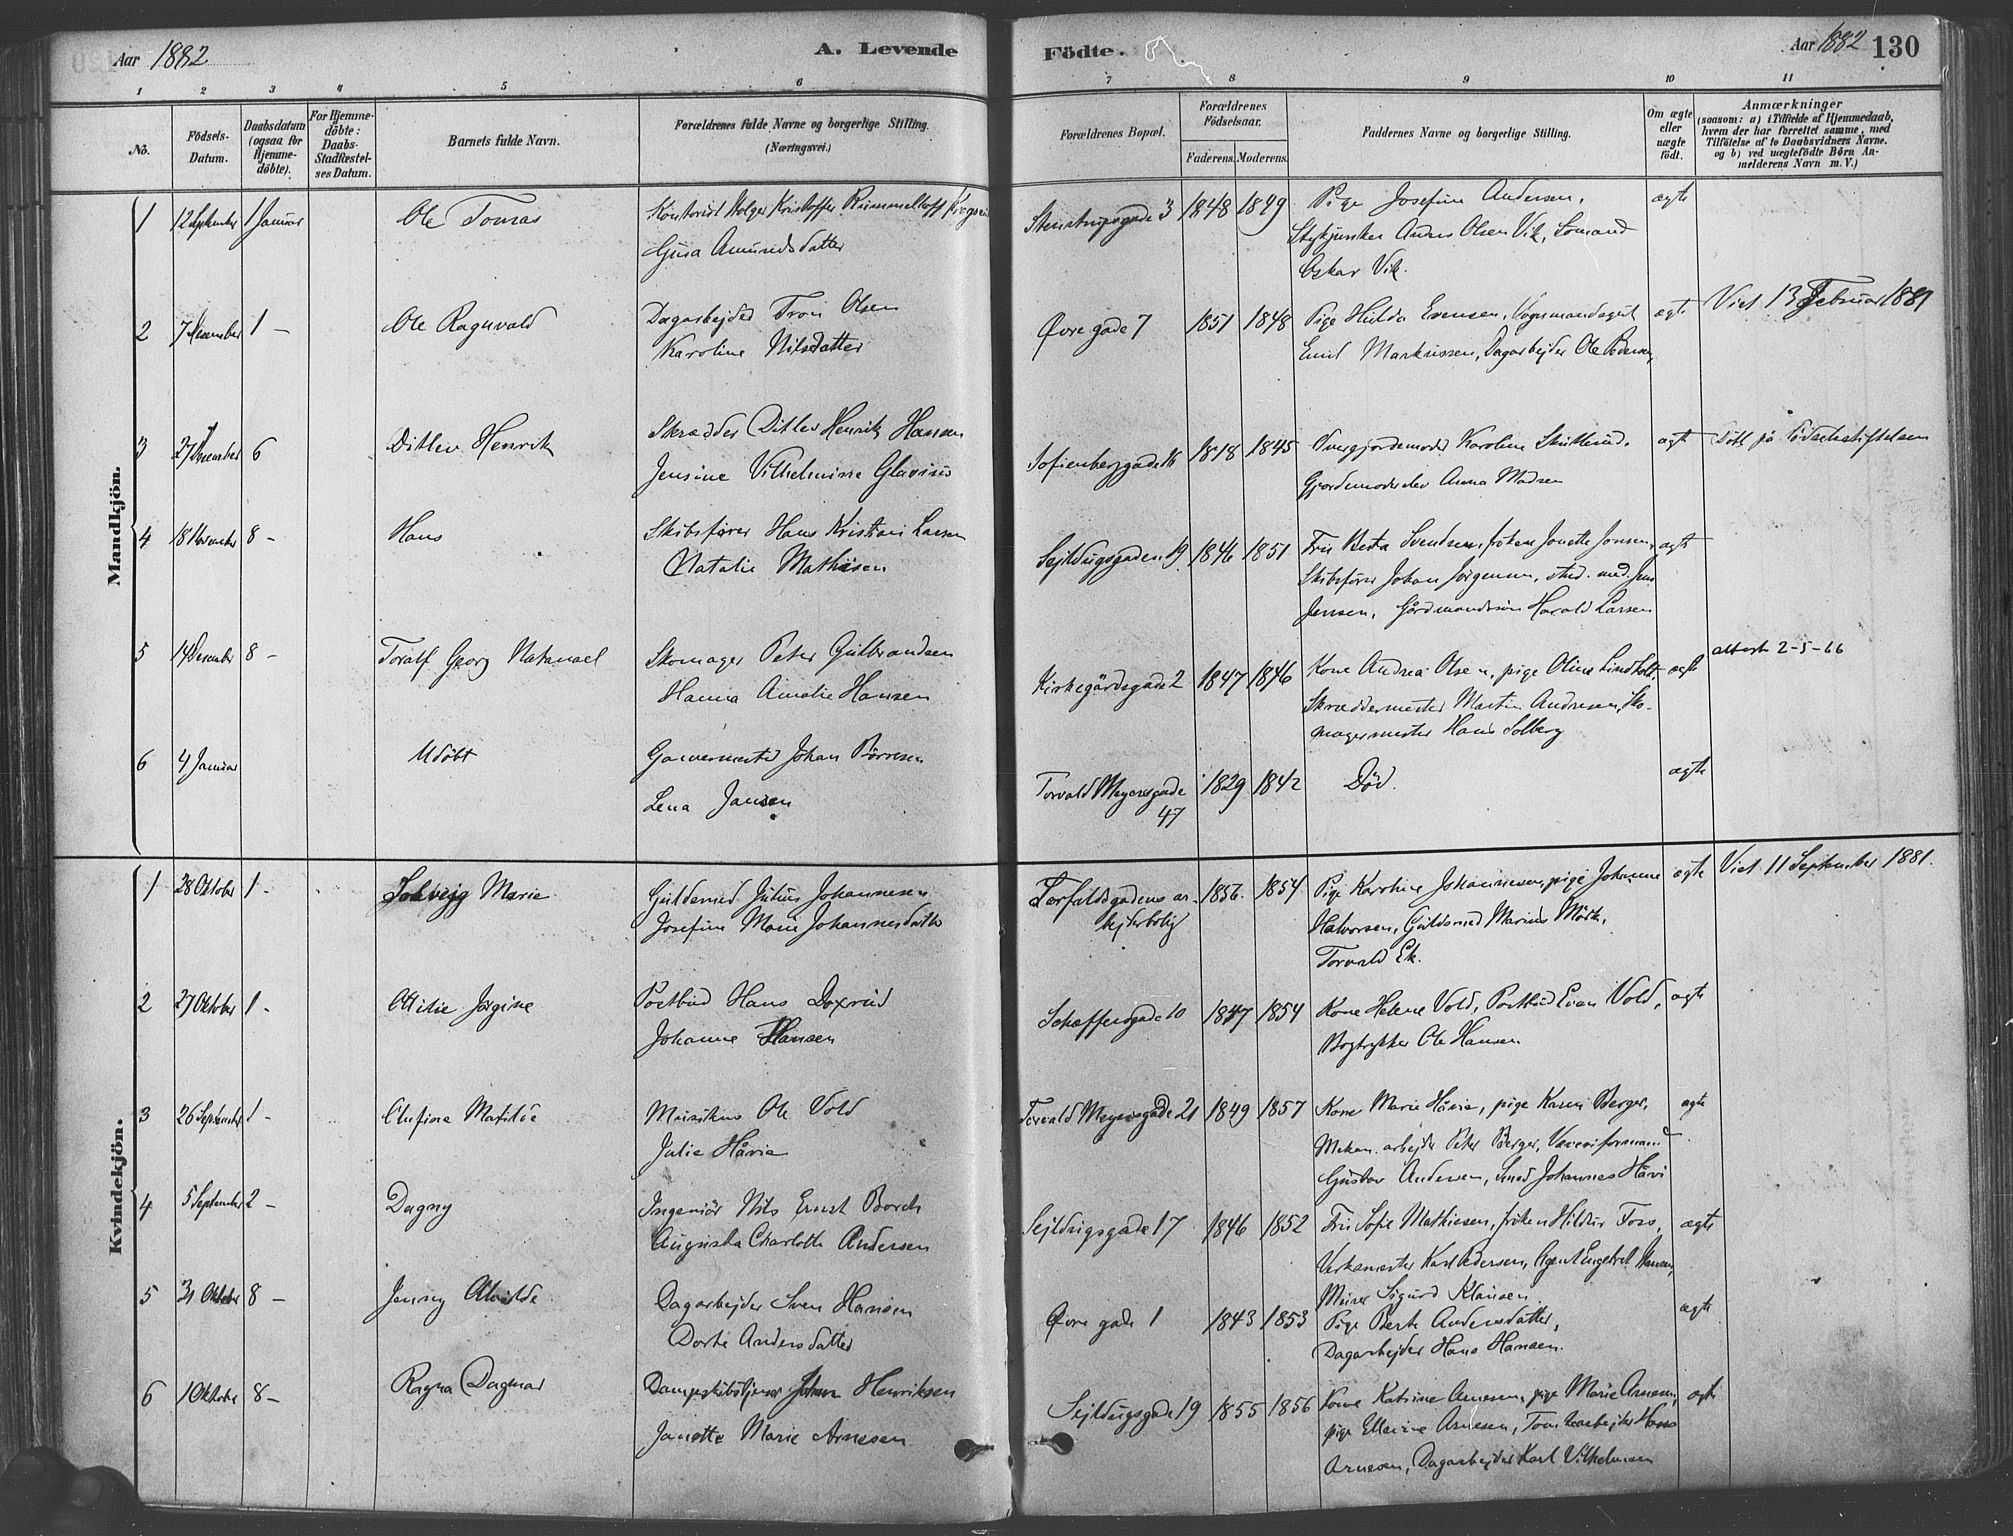 Aar 1882
A. Levende
Födte.
Aar 1882
130
1 2 3 4 5 6 7 8 9 10 11
No.
Födsels-Datum.
Daabsdatum (ogsaa for Hjemme-döbte).
For Hjemme-döbte: Daabs-Stadfæstel-ses Datum.
Barnets fulde Navn.
Forældrenes fulde Navne og borgerlige Stilling.
(Næringsvei.)
Forældrenes Bopæl.
Forældrenes Födselsaar.
Faderens. Moderens.
Faddernes Navne og borgerlige Stilling.
Om ægte eller uægte födt.
Anmærkninger
(saasom: a) i Tilfælde af Hjemmedaab,
hvem der har forrettet samme, med
Tilföielse af to Daabsvidners Navne.
og b) ved uægtefödte Börn An-
melderens Navn m. V.)
Mandkjön.
1 12 September 1 Januar Ole Tomas Kontorist Holger Kristoffer Rummelhoff
Gusa Amundsdatter
Stenstrupsgade 3 1848 1849 Pige Josefine Andersen,
Stykjunker Anders Olsen Vik, Sømand
Oskar Vik.
ægte
2 7 December 1 – Ole Ragnvald Dagarbejder Tron Olsen
Karoline Nilsdatter
Øvre gade 7 1851 1848 Pige Hulda Evensen, Vognmandsgut
Emil Markussen, Dagarbejder Ole Pedersen,
ægte Viet 13 Februar 1881
3 27 December 6 Ditlev Henrik Skrædder Ditlev Henrik Hansen
Jensine Vilhelmine Glavius
Sofienberggade 16 1818 1845 Overgjordemoder Karoline
Gjordemoderelev Anna Madsen
ægte Født på Fødselsstiftelsen
4 18 November 8 – Hans Skibsfører Hans Kristian Larsen
Natalie Mathisen
Sejldugsgaden 19 1846 1851 Fru Berta Svendsen, frøken Jonette Jonsen,
Skibsfører Johan Jørgensen, stud. med. Jens
Jensen, Gårdmandssøn Harald Larsen
ægte
5 14 December 8 – Toralf Georg Natanael Skomager Peter Gulbrandsen
Hanna Amalie Hansen
Kirkegårdsgade 2 1847 1846 Kone Andrea Olsen, pige Oline Lindholt,
Skræddermester Martin Andresen, Sko-
magermester Hans Solberg
ægte attest 2-5-66
6 4 Januar Udøbt Garvermester Johan Børresen
Lena Jansen
Torvald Meyersgade
47
1829 1842 Død. ægte
Kvindekjön.
1 28 Oktober 1 – Solveig Marie Guldsmed Julius Johannesen
Josefine Marie Johannesdatter
Torfaldsgadens ar-
bejderbolig
1856. 1854 Pige Karoline Johannesen, pige Johanne
Halvorsen, Guldsmed Marius Mørk,
Torvald Ek.
ægte Viet 11 September 1881.
2 27 Oktober 1 – Otilie Jørgine Postbud Hans Doxrud
Johanne Hansen
Schæffersgade 10 1847 1854 Kone Helene Vold, Postbud Evan Vold,
Bogtrykker Ole Hansen
ægte
3 26 September 1 – Matilde Musikus Ole Vold
Julie Håvie
Torvald Meyersgade 21 1849 1857 Kone Marie Håvie, pige Karen Berger,
Mekan. arbejder Peter Berger, Væveriformand
Gustav Andersen, Smed Johannes Håvi
ægte
4 5 September 2 – Dagny Ingeniør Nils Ernst Borch
Augusta Charlotte Andersen
Sejldugsgade 17 1846 1852 Fru Sofie Mathiesen, frøken Hildur Foss,
Verksmester Karl Pedersen, Agent Engebret Hansen,
Murer Sigurd Klausen.
ægte
5 31 Oktober 8 – Jenny Alvilde Dagarbejder Sven Hansen
Dorte Andersdatter
Øvre gade 1 1843 1853 Pige Berte Andersdatter,
Dagarbejder Hans Hansen.
ægte
6 1 Oktober 8 – Ragna Dagmar Dampskibstjener Johan Henriksen
Janette Marie Arnesen
Sejldugsgade 19 1855 1856 Kone Katrine Arnesen, pige Marie Arnesen,
pige Ellevine Arnesen, Tomtearbejder Hans
Arnesen, Dagarbejder Karl Vilhelmsen
ægte